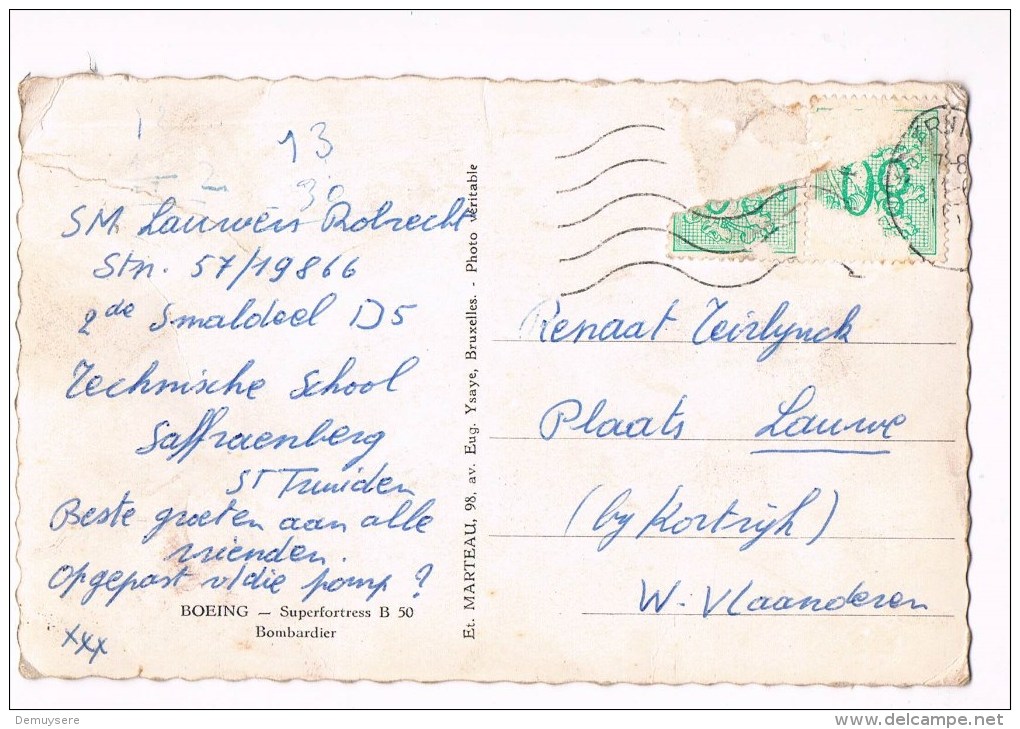 13
30
SM Lauwers Robrecht
Stn. 57/19866
2de Smaldeel D5
Technische School
Saffraenberg
ST Truiden
Beste groeten aan alle
vrienden.
Opgepast v/die pomp ?
BOEING — Superfortress B 50
Bombardier
xxx
Et. MARTEAU, 98, av. Eug. Ysaye, Bruxelles. - Photo véritable
Renaat Teirlynck
Plaats Lauwe
(by Kortrijk)
W. Vlaanderen
Demuysere
www.delcampe.net